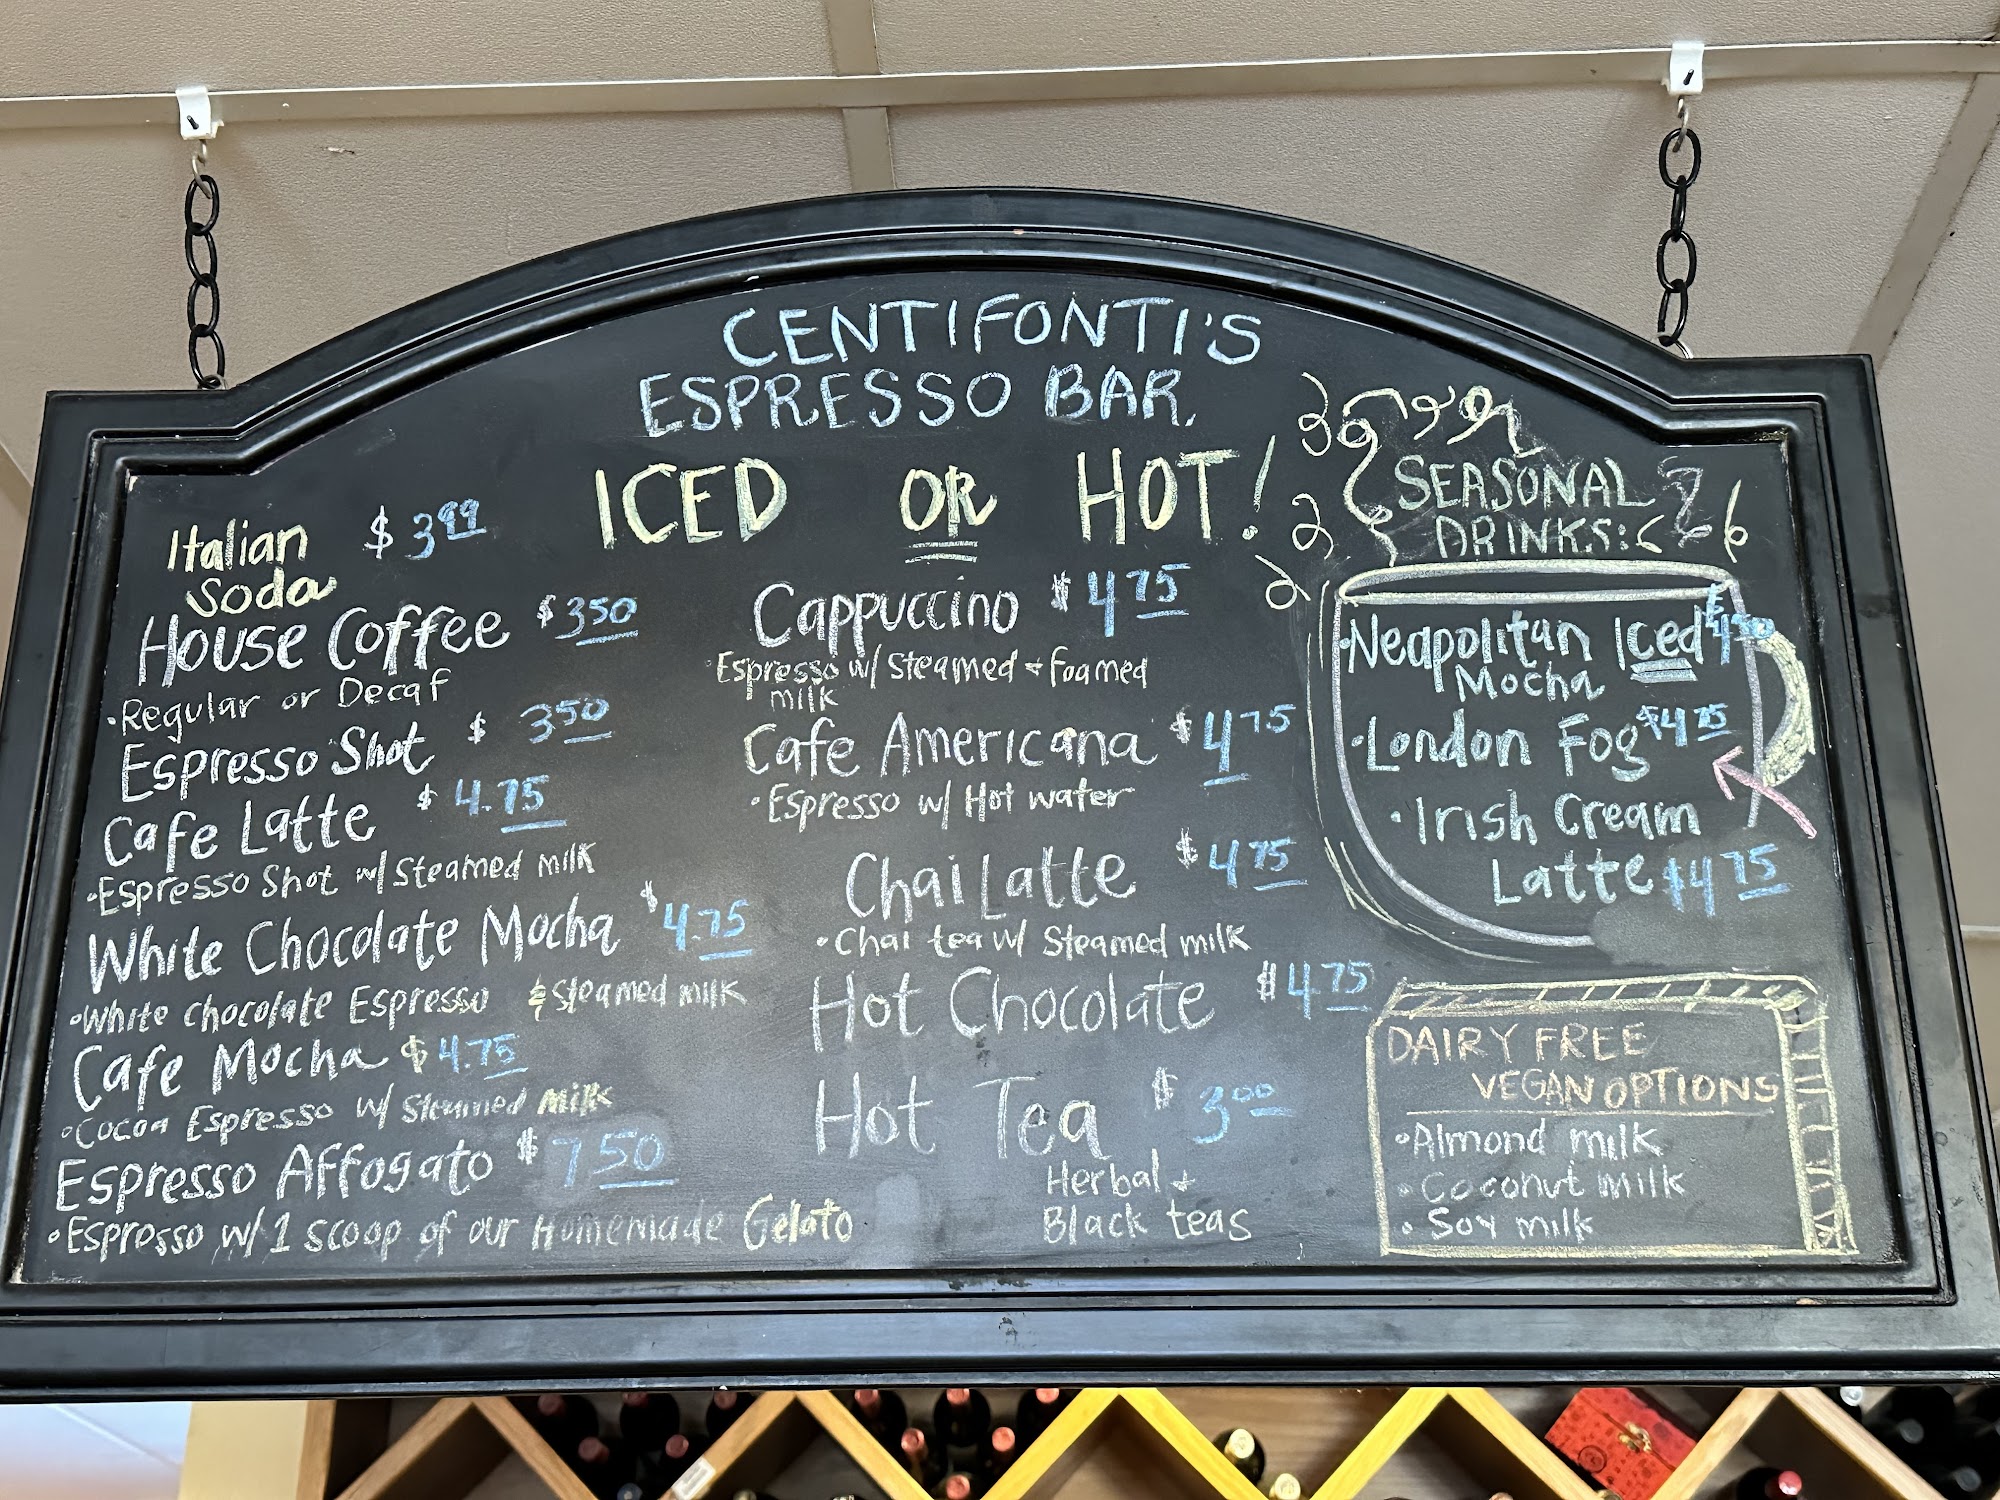 CENTIFONTI'S
ESPRESSO BAR
ICED OR HOT!
Italian $3.99
Soda
House Coffee $350
•Regular or Decaf
Espresso Shot $350
Cafe Latte $4.75
•Espresso Shot w/ Steamed milk
White Chocolate Mocha $4.75
•White chocolate Espresso & Steamed milk
Cafe Mocha $4.75
•Cocoa Espresso w/ Steamed milk
Espresso Affogato $750
•Espresso w/ 1 scoop of our Homemade Gelato
Cappuccino $475
•Espresso w/ Steamed + Foamed
milk
Cafe Americana $475
•Espresso w/ Hot water
Chai Latte $475
•Chai tea w/ Steamed milk
Hot Chocolate $4.75
Hot Tea $300
Herbal +
Black teas
SEASONAL
DRINKS:
•Neapolitan Iced
Mocha
•London Fog $475
•Irish Cream
Latte $475
DAIRY FREE
VEGAN OPTIONS
•Almond milk
•Coconut milk
•Soy milk